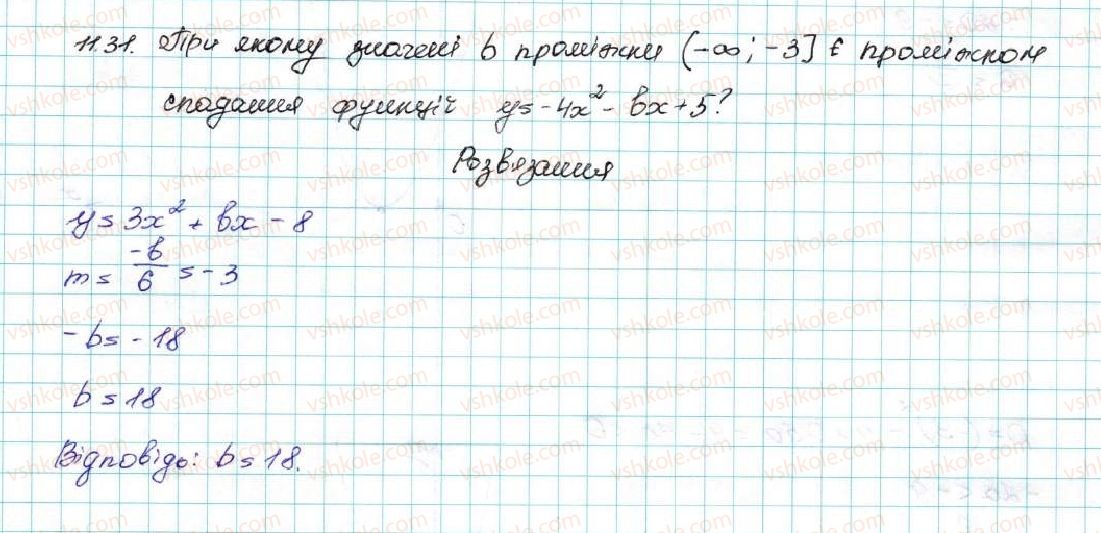 11.31. При якому значені b проміжки (-∞; -3] є проміжком
спадання функції y = -4x² - bx + 5?
Розвязання
y = 3x² + bx - 8
m = -b/6 = -3
-b = -18
b = 18
Відповідь: b = 18.